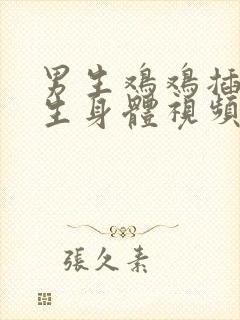 男生鸡鸡插
生身體視頻
張久素